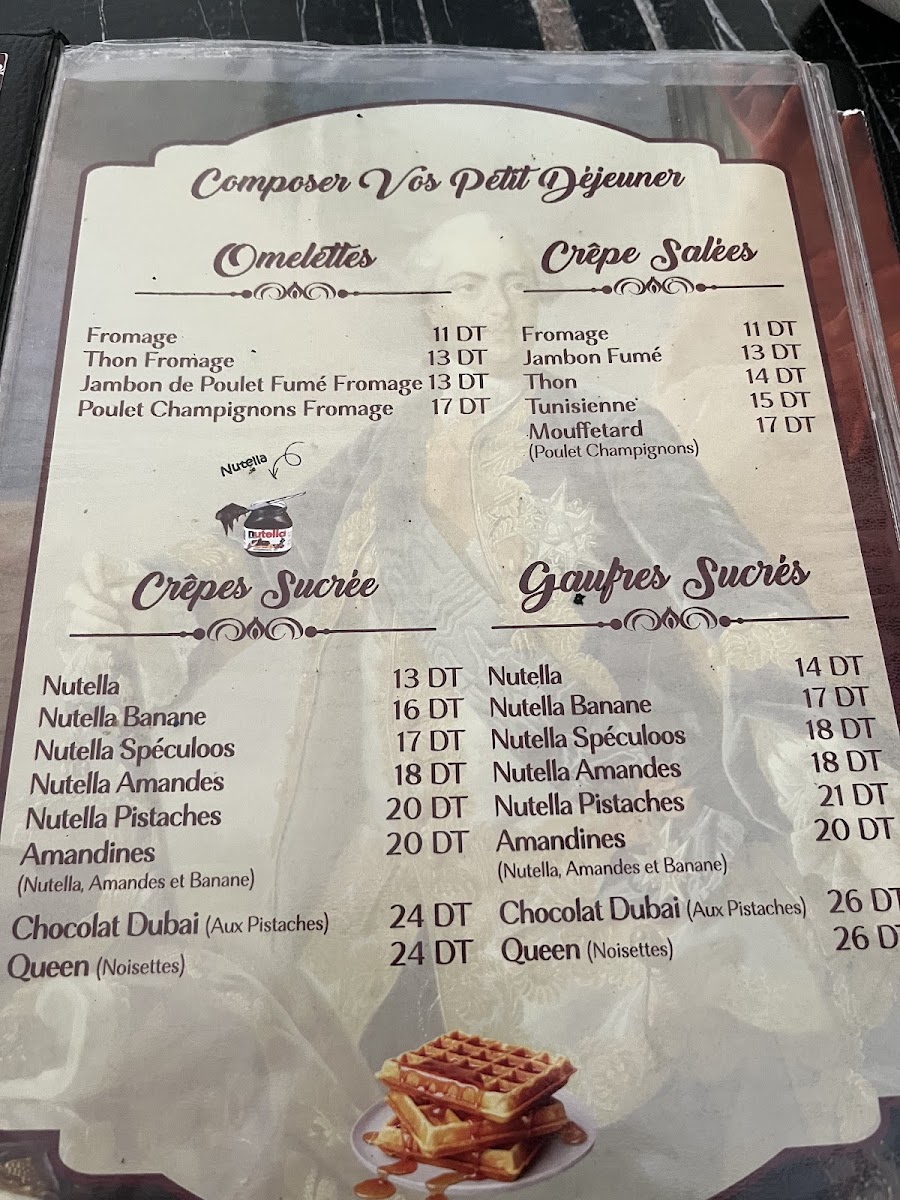 Composer Vos Petit Déjeuner
Omelettes
Fromage 11 DT
Thon Fromage 13 DT
Jambon de Poulet Fumé Fromage 13 DT
Poulet Champignons Fromage 17 DT
Crêpe Salées
Fromage 11 DT
Jambon Fumé 13 DT
Thon 14 DT
Tunisienne 15 DT
Mouffetard 17 DT
(Poulet Champignons)
Nutella
nutella
Crêpes Sucrée
Nutella 13 DT
Nutella Banane 16 DT
Nutella Spéculoos 17 DT
Nutella Amandes 18 DT
Nutella Pistaches 20 DT
Amandines 20 DT
(Nutella, Amandes et Banane)
Chocolat Dubai (Aux Pistaches) 24 DT
Queen (Noisettes) 24 DT
Gaufres Sucrés
Nutella 14 DT
Nutella Banane 17 DT
Nutella Spéculoos 18 DT
Nutella Amandes 18 DT
Nutella Pistaches 21 DT
Amandines 20 DT
(Nutella, Amandes et Banane)
Chocolat Dubai (Aux Pistaches) 26 DT
Queen (Noisettes) 26 DT